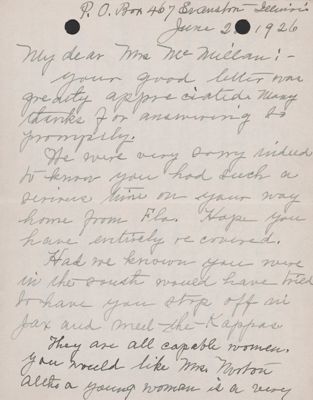 P. O. Box 467 Evanston Illinois
June 2 1926
My dear Mrs McMillan:-
your good letter was
greatly appreciated many
thanks for answering so
promptly.
We were very sorry indeed
to know you had such a
serious time on your way
home from Fla. Hope you
have entirely recovered.
Had we known you were
in the south would have tried
to have you stop off in
Jax and meet the Kappas
They are all capable women.
you would like Mrs. Norton
altho a young woman is a very